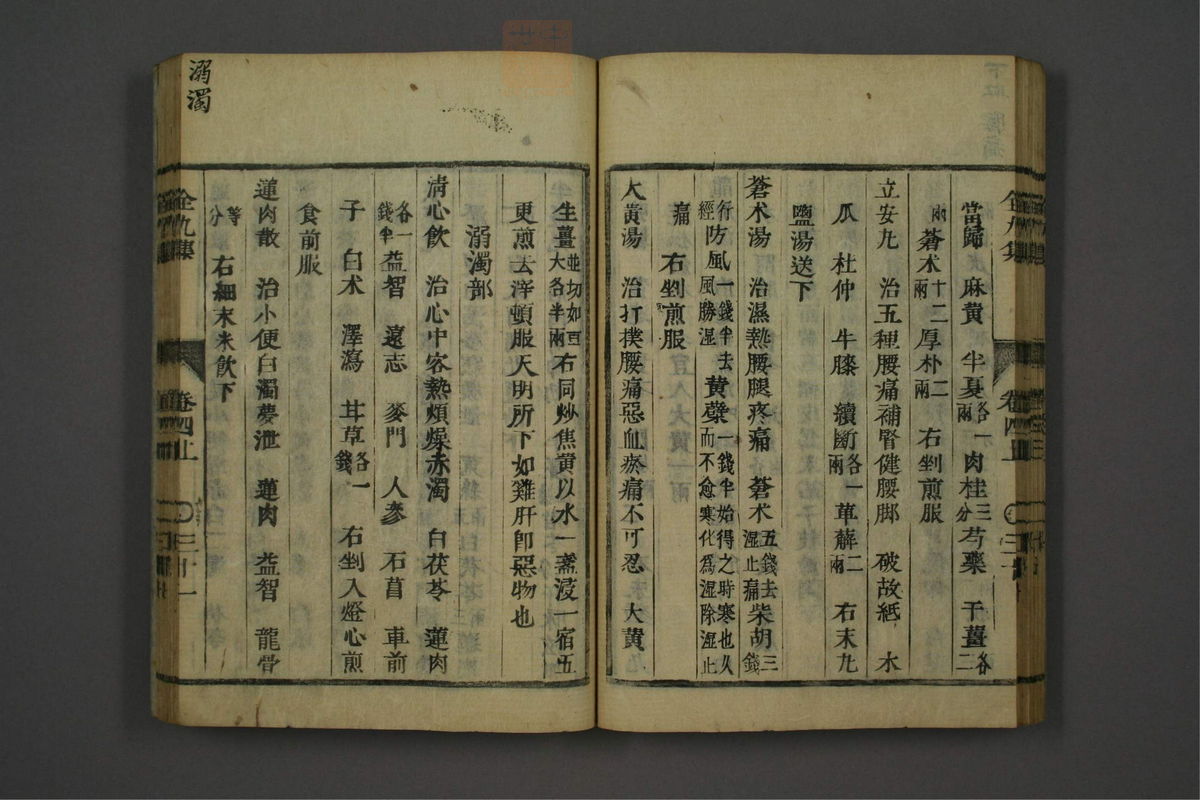 當歸 麻黃 半夏各一兩 肉桂三分 芍藥 干薑各二
兩 蒼术十二兩 厚朴二兩 右剉煎服
立安丸 治五種腰痛補腎健腰脚 破故紙 木
瓜 杜仲 牛膝 續斷各一兩 萆薢二兩 右末丸
鹽湯送下
蒼术湯 治濕熱腰腿疼痛 蒼术五錢去湿止痛 柴胡三錢
行經 防風一錢半去風勝湿 黃蘗一錢半始得之時寒也久而不愈寒化爲湿除湿止
痛 右剉煎服
大黃湯 治打撲腰痛惡血瘀痛不可忍 大黃
生薑並切如豆大各半兩 右同炒焦黄以水一盞浸一宿五
更煎去滓頓服天明所下如雞肝即惡物也
溺濁部
淸心飮 治心中客熱煩燥赤濁 白茯苓 蓮肉
各一錢半 益智 遠志 麥門 人參 石菖 車前
子 白术 澤瀉 甘草各一錢 右剉入燈心煎
食前服
蓮肉散 治小便白濁夢泄 蓮肉 益智 龍骨
等分 右細末米飮下
溺濁
全九集
卷四上
三十一
全九集
卷四上